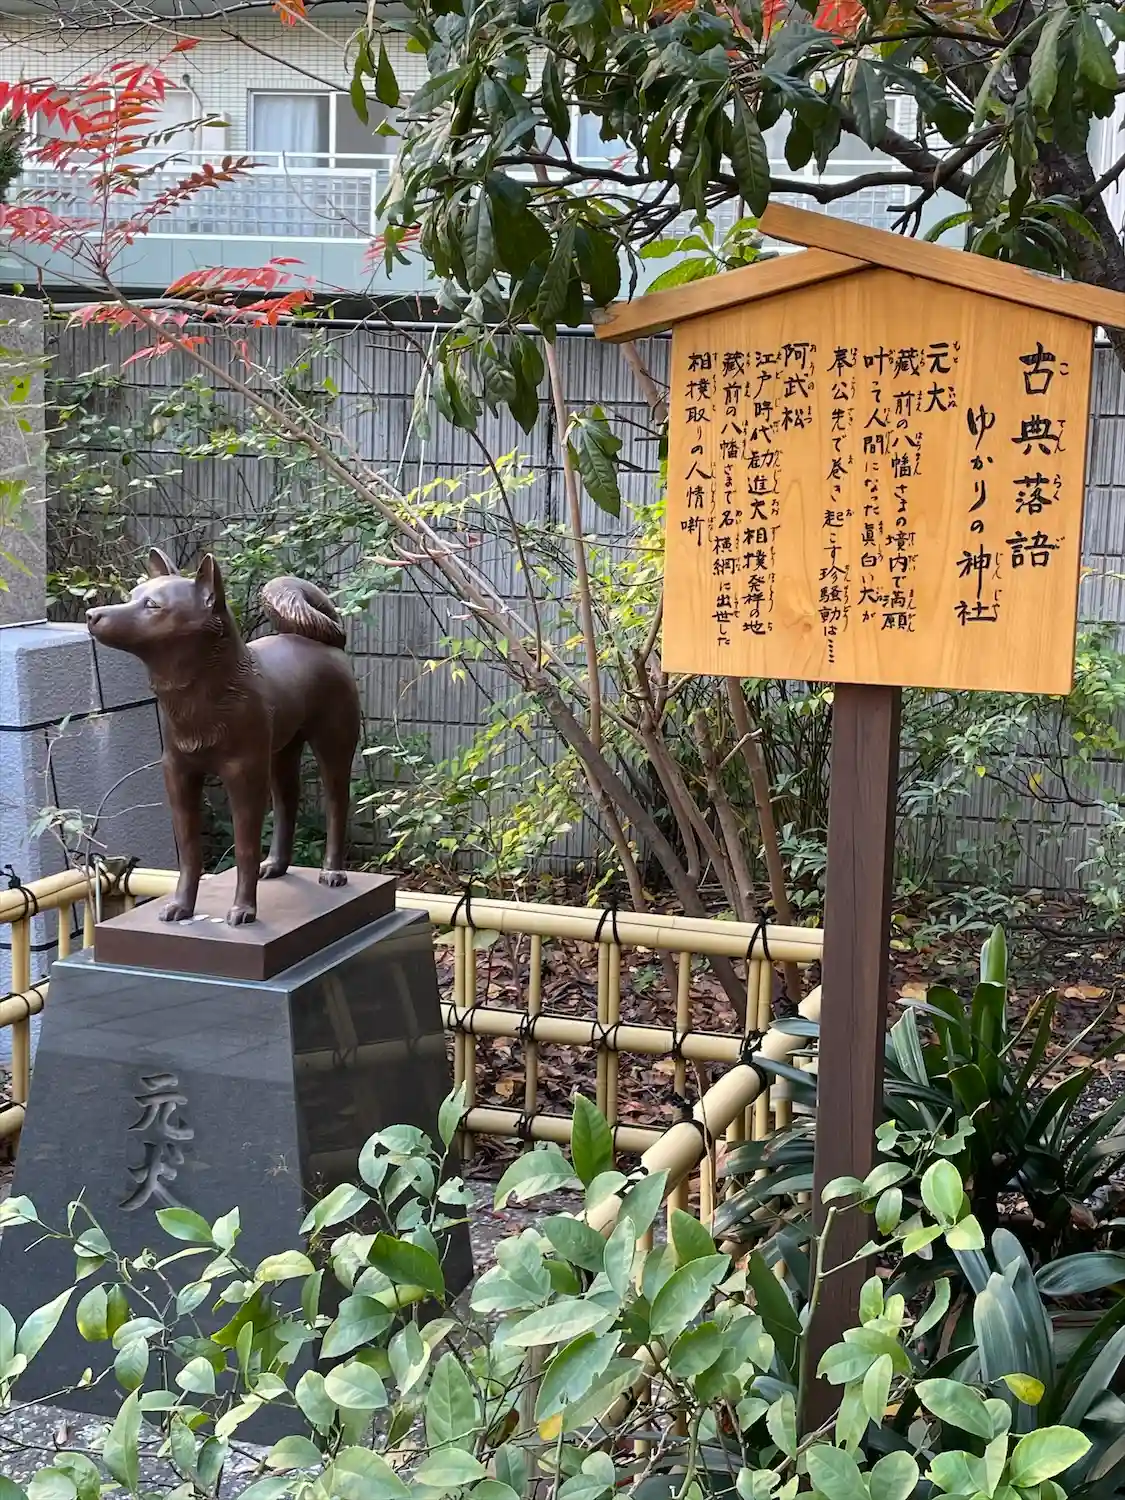 古典落語
ゆかりの神社
元犬
蔵前の八幡さまの境内で満願
叶って人間になった眞白い犬が
奉公先で巻き起こす珍騒動は……
阿武松
江戸時代勧進大相撲発祥の地
蔵前の八幡さまで名横綱に出世した
相撲取りの人情噺
元犬